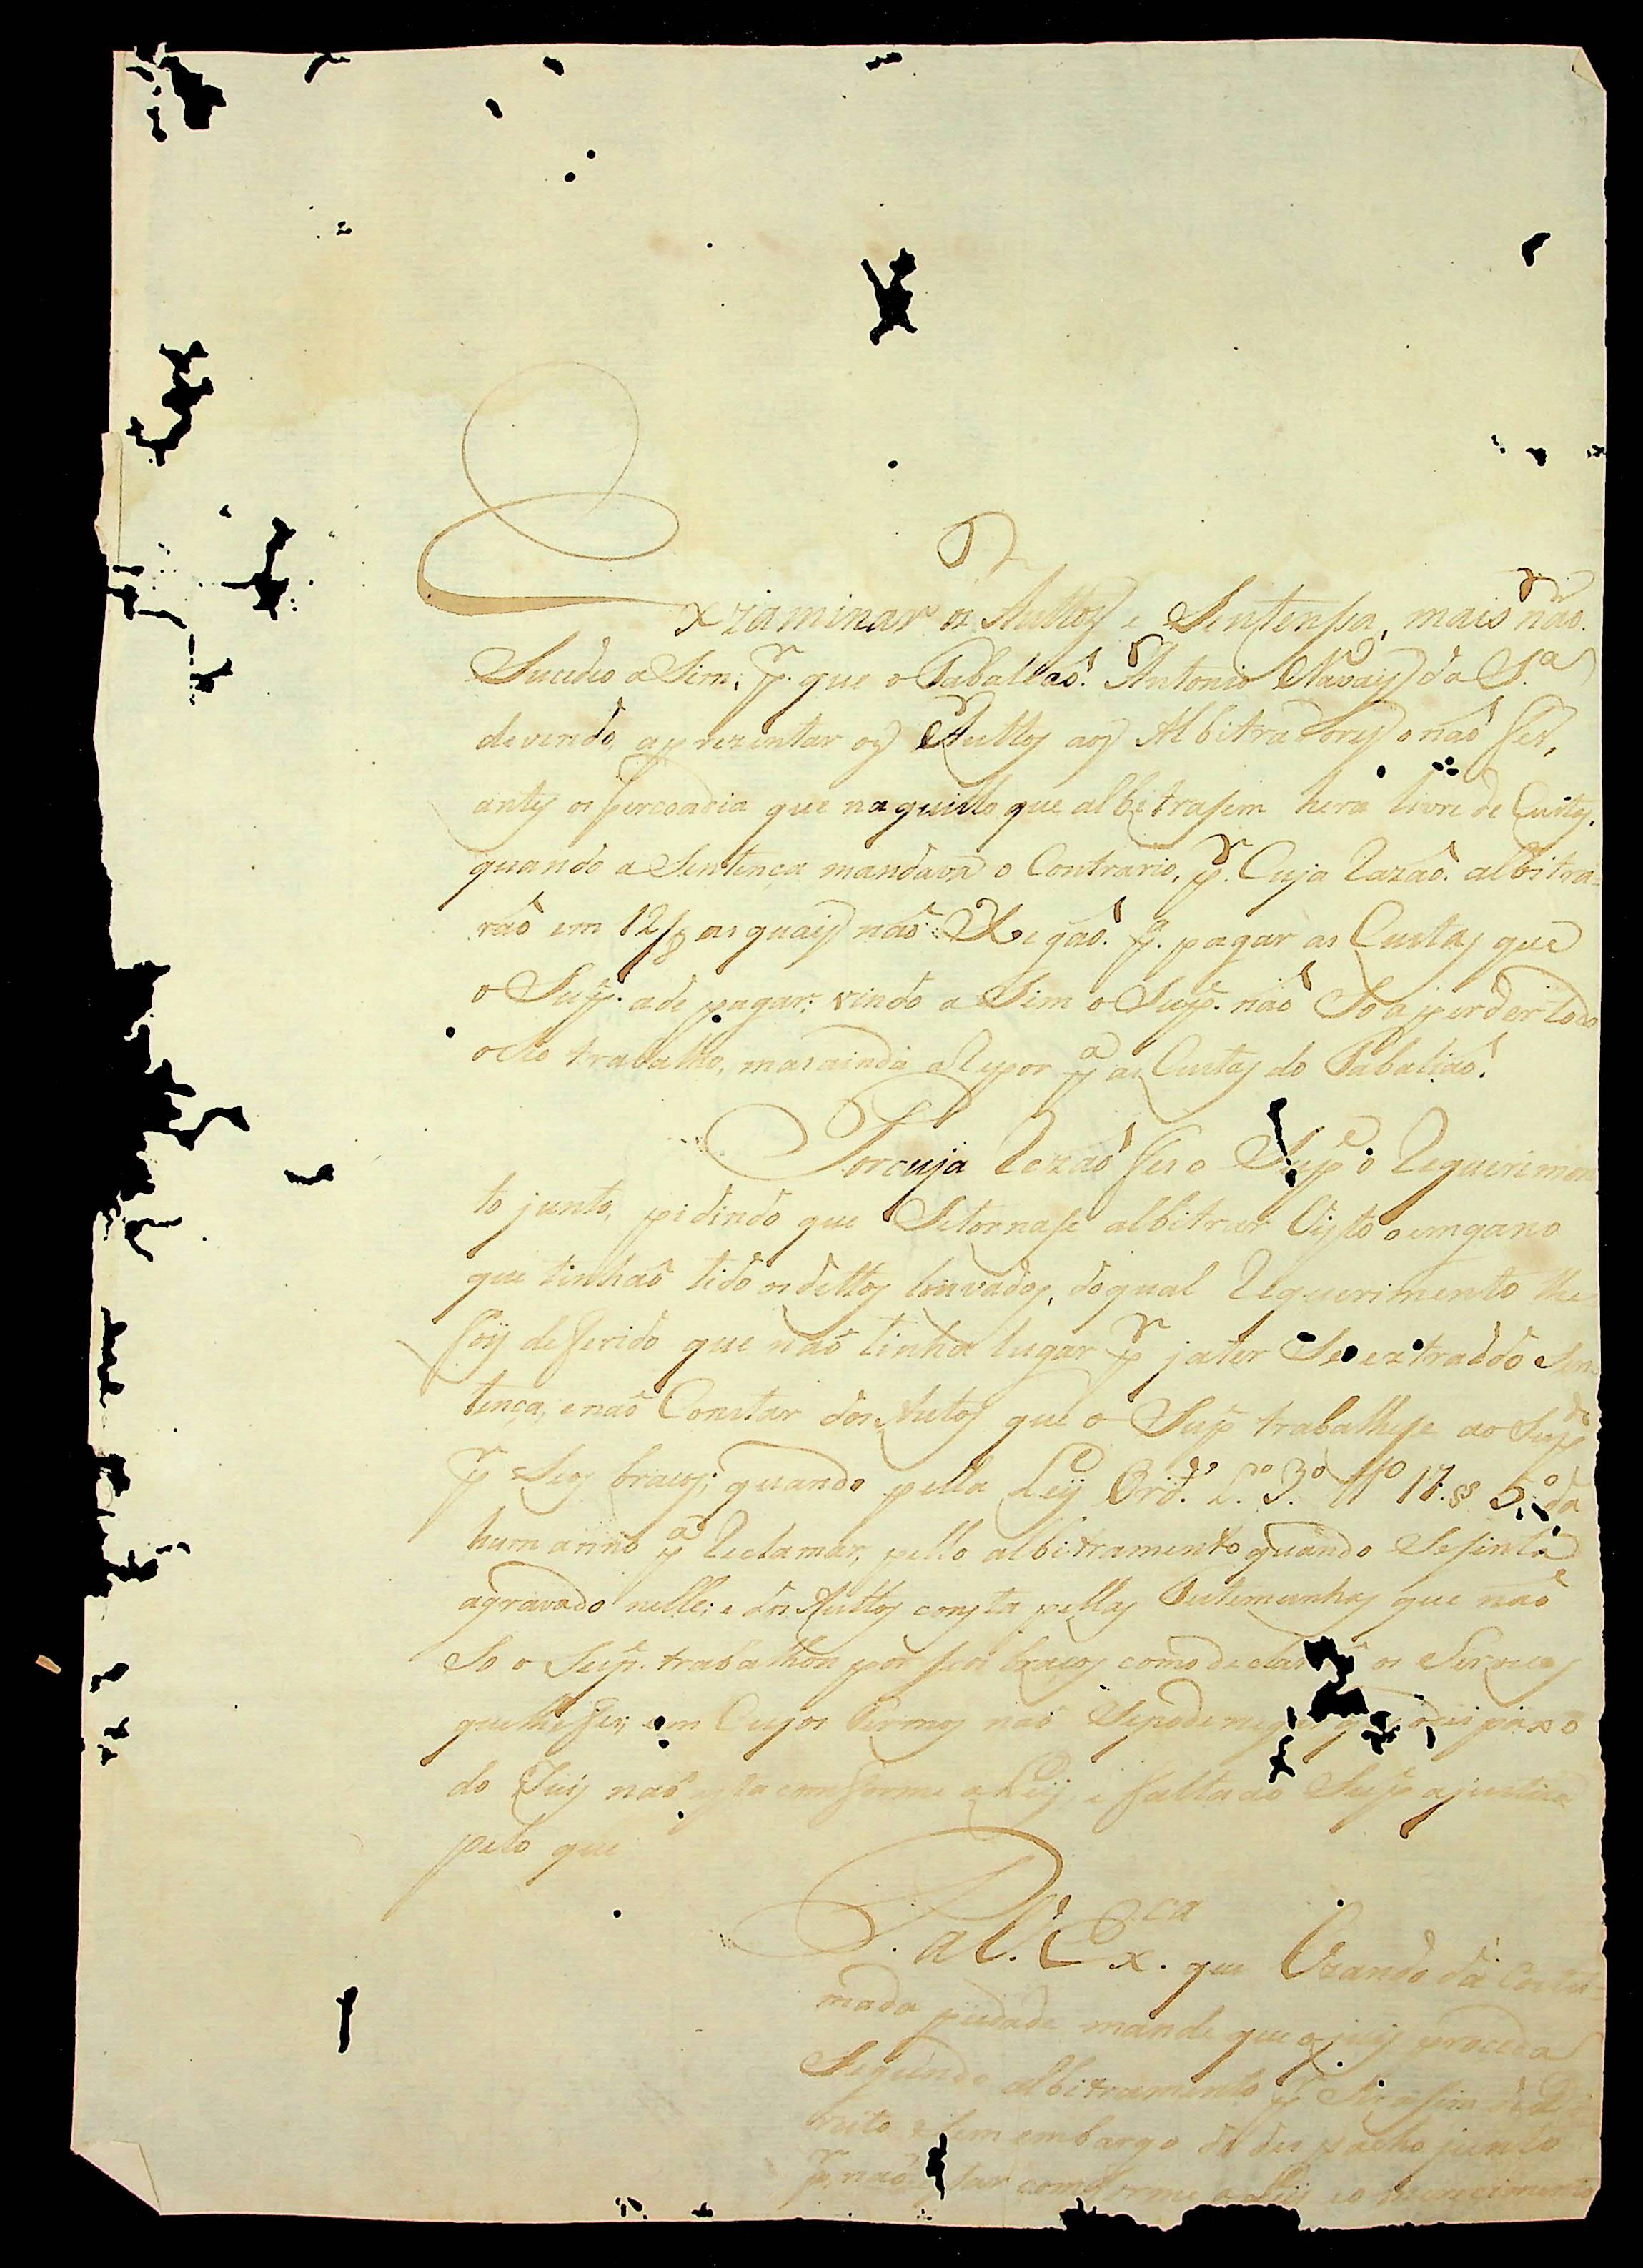 Exzaminar os Auttos e Sentensa, mais não.
Sucedeo a Sim, pr. que o Taballião Antonio Navais da S.a
devendo, aprezentar os Auttos aos Albitradores o não fes,
antes os percoadia que naquillo que albitrasem hera livre de Custas.
quando a Sentença mandava o Contrario, pr. Cuja Razão. albitra-
rão em 12/8 as quais não Xegão. pa. pagar as Custas que
o Sup.e ade pagar; vindo a Sim o Sup.e não So a perder todo
o Seo trabalho, mas ainda a Repor pa as Custas do Tabalião.
Por cuja Rezão fes o Sup.e o Requerimen
to junto, pidindo que Setornase albitrar Visto o emgano
que tinhão tido os dittos louvados, do qual Requerimento lhe
foy deferido que não tinha lugar pr ja ter Se extraido Sen
tença, e não Constar dos Autos que o Sup.e trabalhese ao Sup.do
pr Seos braços; quando pella Ley Ord. L.o 3.o tt.o 17. §§ 5.o da
hum anno pa Reclamar, pello albitramento quando Se sinta
agravado nelle; e dos Auttos consta pellas Testemunhas que não
So o Sup.e trabalhou por seos braços como declarão os Serviços
que lhe fes; em Cujos Termos não Sepode negar que o despaxo
do Juis não esta comforme a Ley, e falta ao Sup.e a justiça
pelo que
P. a V. Ex.ca que Uzando da Costu-
mada piedade mande que o juis proceda
Segundo albitramento pr Ser asim de Di
reito, e Sem embargo do despacho junto
pr não estar comforme a Ley, e o merecimento